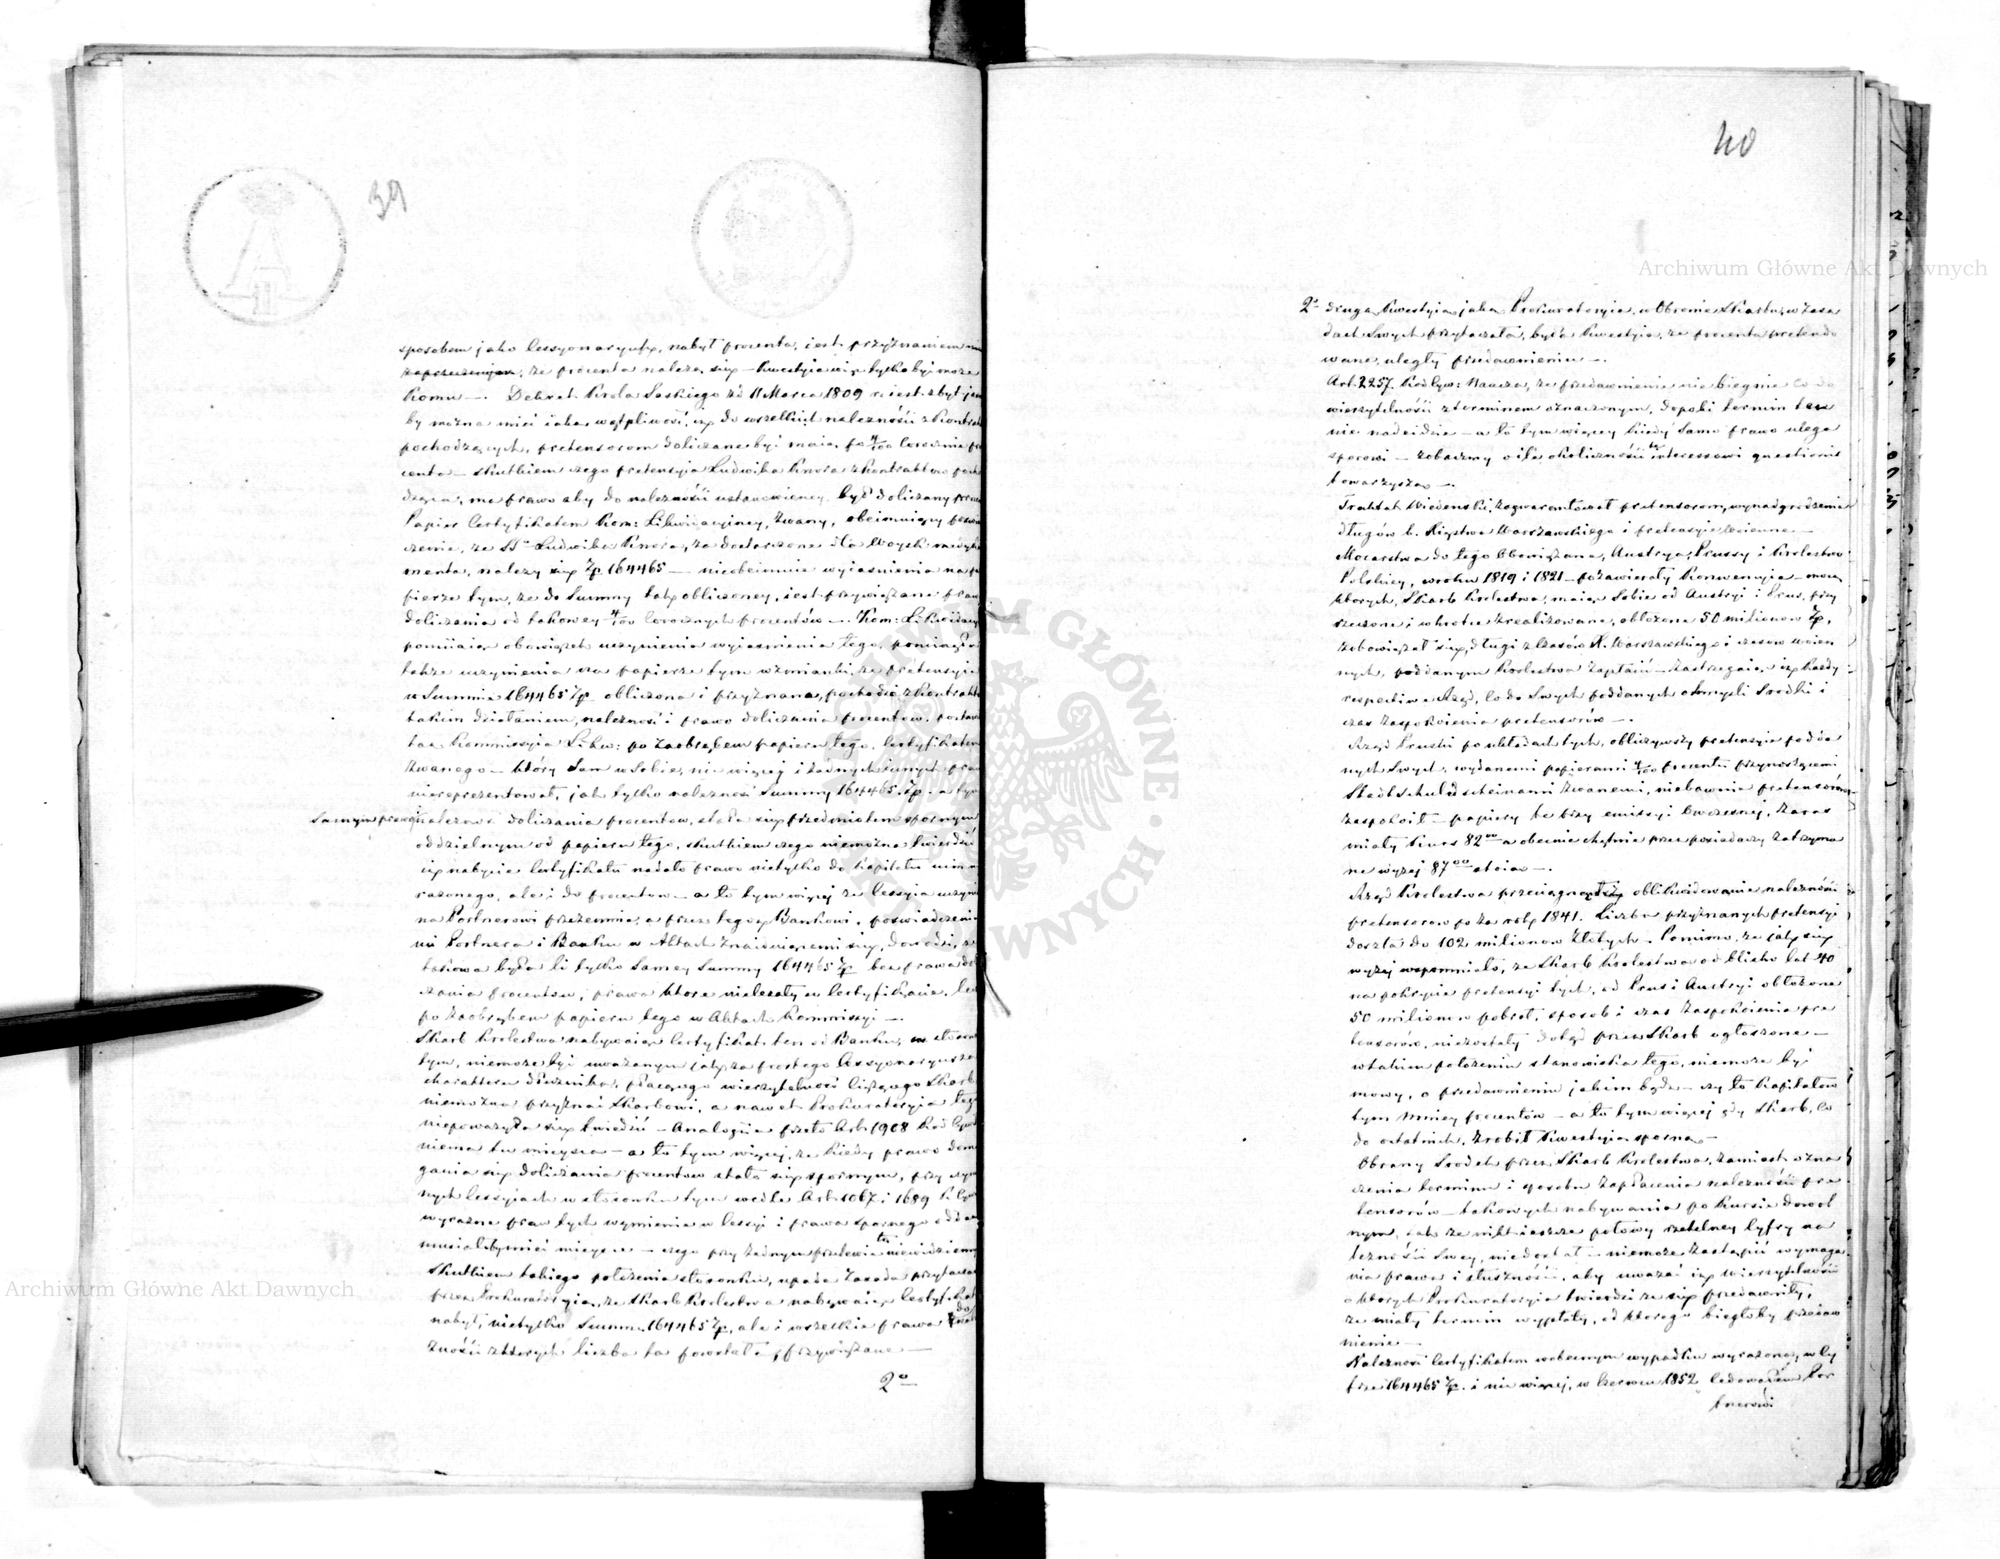 39
sposobem jako Cessyonaryusz, nabył procenta, iest przyznaniem
że procenta należą się – kwestyia więc tylko być może
komu –. Dekret Króla Saskiego z d 11 Marca 1809 r. iest zbyt
by można mieć iaką wątpliwość, iż do wszelkich należności z kontrak
pochodzących, pretensorom doliczane być maią po 4/100 corocznie pro
centa – skutkiem czego pretensyia Ludwika Knora z kontraktu
ma prawo aby do należności ustanowioney, był doliczany
Papier Certyfikatem Kom: Likwidacyiney, zwany, obeimuiący
że Ludwika Knora, za dostarczone dla Woysk
menta, należy się Zp 164465 – nieobeimuie wyiaśnienia na pa
pierze tym, że do Summy tak obliczoney, iest przywiązane praw
doliczania od takowey 4/100 corocznych procentów –. Kom: Likwidacy
pomiiaiąc obowiązek uczynienia wyiaśnienia tego, pominęła
także uczynienia na papierze tym wzmianki, że pretensyia
w Summie 164465 Zp obliczona i przyznana, pochodzi z kontraktu
takim działaniem, należność i prawo doliczania procentów, pozosta
Kommissyia Likw: po za obrębem papieru tego, Certyfikatem
zwanego – który sam w sobie, nie więcej i żadnych innych praw
niereprezentował, jak tylko należność Summy 164465 Zp. a tym
samym prawo należność doliczania procentów, stała się przedmiotem spornym
oddzielnym od papieru tego, skutkiem czego niemożna twierdzić
iż nabycie Certyfikatu nadało prawo nietylko do kapitału
rażonego, ale i do procentów – a to tym więcej że Cessyia uczyni
na Portnerowi przezemnie, a przez tegoż Bankowi, poświadczeni
mi Portnera i Banku w Aktach znaiduiącemi się, dowodzi, że
takowa była li tylko samey Summy 164465 Zp bez prawa doli
czania procentów, prawa które nieleżały w Certyfikacie, lecz
po za obrębem papieru tego w Aktach Kommissyi –.
Skarb Królestwa nabywaiąc Certyfikat ten od Banku, w stosun
tym, niemoże być uważanym iak za prostego Cessyonaryusza
charakteru dłużnika, płacącego wierzytelność ciążącego Skarb
niemożna przyznać Skarbowi, a nawet Prokuratoryia tego
niepoważyła się twierdzić – Analogiia przeto Art. 1908 Kod Cyw
niema tu mieysca – a to tym więcej, że kiedy prawo doma
gania się doliczania procentów stało się spornym, przy uczynio
nych Cessyiach w stosunku tym wedle Art. 1067 i 1689 K Cyw
wyraźne praw tych wymienie w Cessyi i prawa spornego
musiałoby mieć mieysce – czego przy żadnym przelewie tu niewidziemy
Skutkiem takiego położenia stosunku, upada Zasada przytacza
przez Prokuratoryią, że Skarb Królestwa nabywaiąc Certyfikat
nabył, nietylko Summę 164465 Zp, ale i wszelkie prawa do
z których liczba ta powstała, przywiązane –
2o
40
2o druga kwestyia jaką Prokuratoryia w Obronie Skarbu, w Zasa
dach swych przytaczała, była kwestyia, że procenta pretendo
wane, uległy przedawnieniu –.
Art. 2257. Kod Cyw: Naucza, że przedawnienie nie biegnie co do
wierzytelności z terminem oznaczonym, dopóki termin ten
nie nadeidzie – a to tym więcey kiedy samo prawo ulega
sporowi – zobaczmy o ile okoliczności te interessowi questionis
towarzyszą –.
Traktat Wiedeński, zagwarantował pretensorom, wynadgrodzenie
długów b. Xięstwa Warszawskiego i pretensyie woienne –
Mocarstwa do tego Obowiązane, Austrya, Prussy i Królestwo
Polskiey, w roku 1819 i 1821 – pozawierały Konwencyie – mocą
których, Skarb Królestwa, maiąc sobie od Austryi i Prus, przy
rzeczone i wkrótce zrealizowane, obłożone 50 milionów Zp,
zobowiązał się, długi z czasów X. Warszawskiego i czasów woien
nych, poddanym Królestwa zapłacić – zastrzegaiąc, iż każdy
respective Rząd, co do swych poddanych obmyśli środki i
czas zaspokoienia pretensorów –.
Rząd Pruski po układach tych, obliczywszy pretensyie podda
nych swych, wydanemi papierami 4/100 procentu przynoszącemi
Stadtschuldscheinami zwanemi, niebawnie pretensorów
zaspokoił – papiery te przy emissyi ówczesnej, zaraz
miały kurs 82 00 a obecnie chętnie przez posiadaczy zatrzyma
ne wyżej 87 00 stoią –.
Rząd Królestwa przeciągnął oblikwidowanie należności
pretensorów po za rok 1841. Liczba przyznanych pretensyi
doszła do 102 milionów Złotych – Pomimo, że iak się
wyżej wspomniało, że Skarb Królestwa od blisko lat 40
na pokrycie pretensyi tych, od Prus i Austryi obłożone
50 milionów pobrał, sposób i czas zaspokoienia pre
tensorów, niezostały dotąd przez Skarb ogłoszone –
w takim położeniu stanowiska tego, niemoże być
mowy, o przedawnieniu jakim bądź – czy to kapitałów
tym mniey procentów – a to tym więcej gdy Skarb, co
do ostatnich, zrobił kwestyią sporną –
Obrany Środek przez Skarb Królestwa, zamiast ozna
czenia terminu i sposobu zapłacenia należności pre
tensorów – takowych nabywania po kursie dowol
nym, tak że nikt ieszcze połowy rzetelney cyfry na
leżności swey, niedostał – niemoże zastąpić wymaga
nia prawa i słuszności, aby uważać iż wierzytelności
o których Prokuratoryia twierdzi że się przedawniły,
że miały termin wypłaty, od którego biegłoby przedaw
nienie –
Należność Certyfikatem w obecnym wypadku wyrażona, w Cy
frze 164465 Zp. i nie więcej, w Czerwcu 1852 cedowałem Por
tnerowi